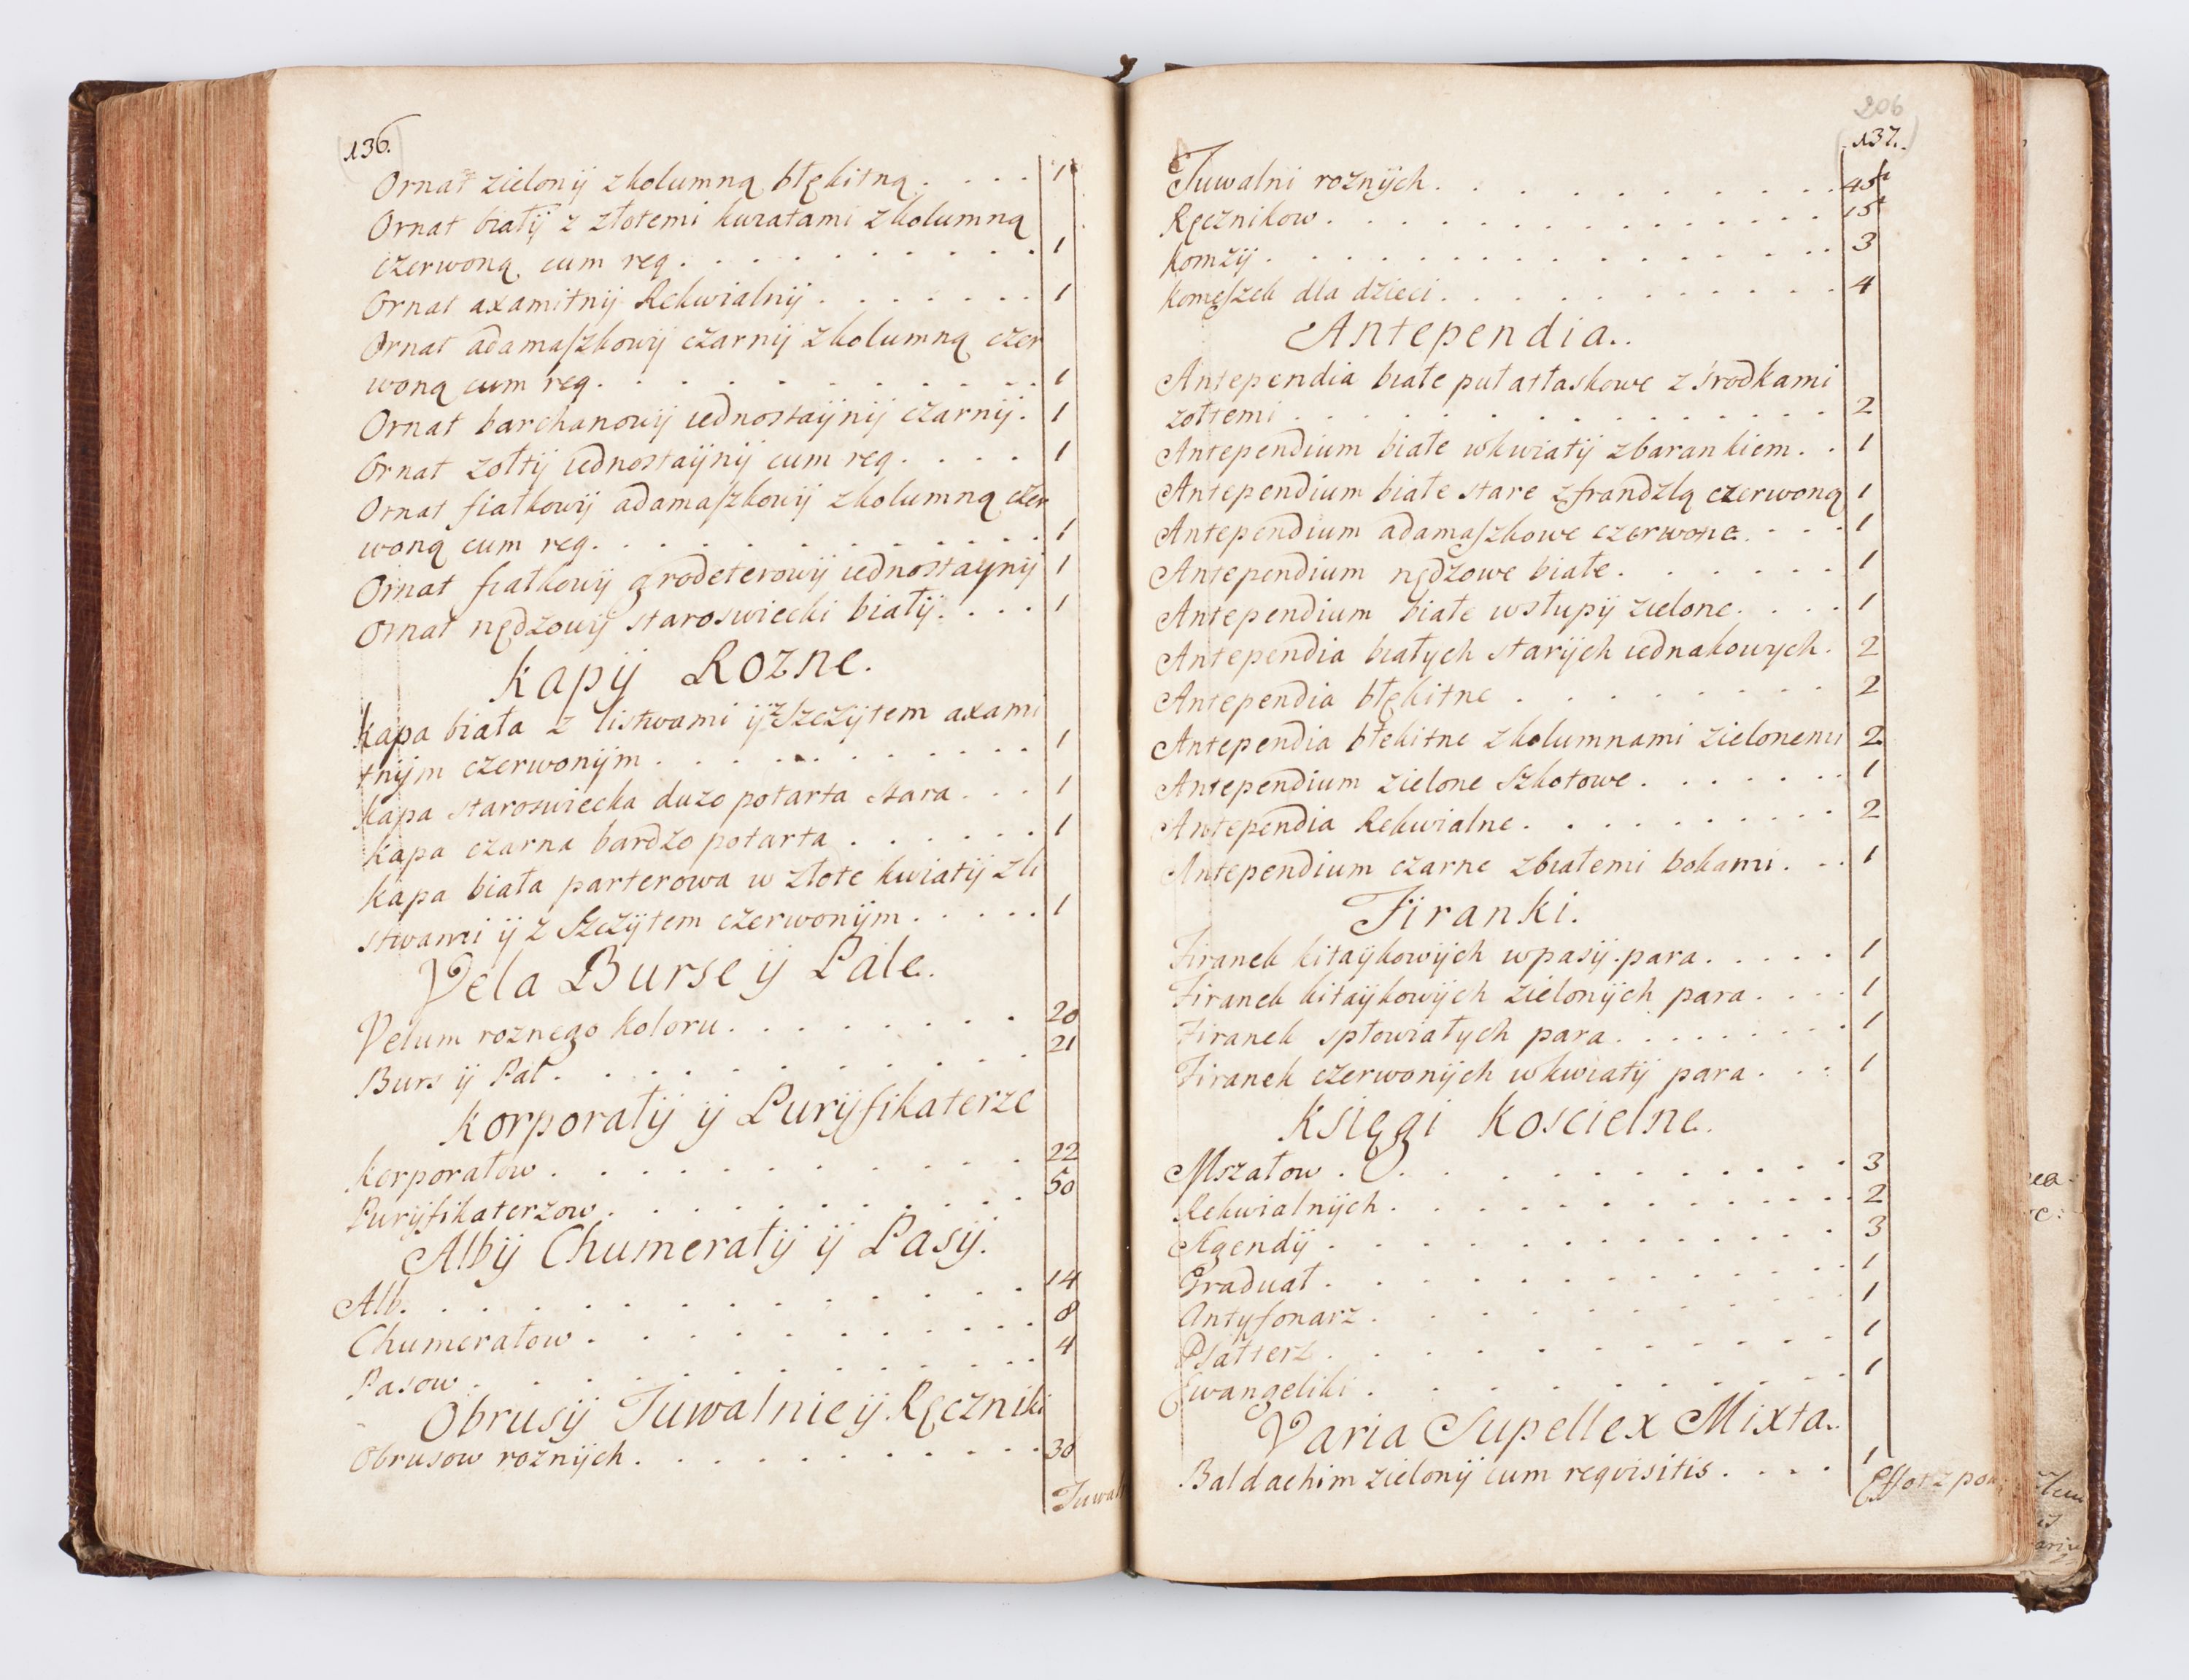 136.
Ornat zielonÿ z kolumną błękitną . . . . 1
Ornat białÿ z złotemi kwiatami z kolumną
czerwoną cum req . . . . . . . . . 1
Ornat axamitnÿ Rekwialnÿ . . . . . . . 1
Ornat adamaſzkowÿ czarnÿ z kolumną czer
woną cum req . . . . . . . . . . 1
Ornat barchanowÿ iednostaÿnÿ czarnÿ . 1
Ornat żołtÿ iednostaÿnÿ cum req . . . . 1
Ornat fiałkowÿ adamaſzkowÿ z kolumną czer
woną cum req . . . . . . . . . . 1
Ornat fiałkowÿ grodeterowÿ iednostaynÿ 1
Ornat nędzowÿ staroswiecki białÿ . . . 1
Kapÿ Rozne.
Kapa biała z listwami ÿ z Szczÿtem axami
tnÿm czerwonÿm . . . . . . . . . 1
Kapa staroswiecka duzo potarta stara . . . 1
Kapa czarna bardzo potarta . . . . . . 1
Kapa biała parterowa w złote kwiatÿ z li
stwami ÿ z Szczÿtem czerwonÿm . . . . . 1
Vela Burse ÿ Pale.
Velum roznego koloru . . . . . . . . 20
Burs ÿ Pal . . . . . . . . . . . 21
Korporałÿ ÿ Purÿfikaterze
Korporałow . . . . . . . . . . . 22
Purÿfikaterzow . . . . . . . . . . 50
Albÿ Chumerałÿ ÿ Pasÿ.
Alb . . . . . . . . . . . . . . 14
Chumerałow . . . . . . . . . . . 8
Pasow . . . . . . . . . . . . . 4
Obrusÿ Tuwalnie ÿ Ręczniki
Obrusow roznÿch . . . . . . . . . 30
Tuwal
206
137.
Tuwalni roznÿch . . . . . . . . . 45
Ręcznikow . . . . . . . . . . . . 15
Komżÿ . . . . . . . . . . . . . 3
Komeſzek dla dzieci . . . . . . . . . 4
Antependia.
Antependia białe puł atłaskowe z środkami
zołtemi . . . . . . . . . . . . . 2
Antependium białe w kwiatÿ z barankiem . . 1
Antependium białe stare z frandzlą czerwoną 1
Antependium adamaſzkowe czerwone . . . 1
Antependium nędzowe białe . . . . . . 1
Antependium białe w słupÿ zielone . . . . 1
Antependia białych starÿch iednakowych . 2
Antependia błękitne . . . . . . . . . 2
Antependia błekitne z kolumnami zielonemi 2
Antependium zielone Szkotowe . . . . . . 1
Antependia Rekwialne . . . . . . . . . 2
Antependium czarne z białemi bokami . . . 1
Firanki.
Firanek kitaÿkowÿch w pasÿ . para . . . . . 1
Firanek kitaÿkowÿch zielonÿch para . . . . 1
Firanek spłowiałych para . . . . . . . . 1
Firanek czerwonÿch w kwiatÿ para . . . 1
Księgi Koscielne.
Mszałow . . . . . . . . . . . . 3
Rekwialnÿch . . . . . . . . . . . 2
Agendÿ . . . . . . . . . . . . . 3
Graduał . . . . . . . . . . . . . 1
Antyfonarz . . . . . . . . . . . . 1
Psałterz . . . . . . . . . . . . . 1
Ewangeliki . . . . . . . . . . . . 1
Varia Supellex Mixta.
Baldachim zielonÿ cum reqvisitis . . . . 1